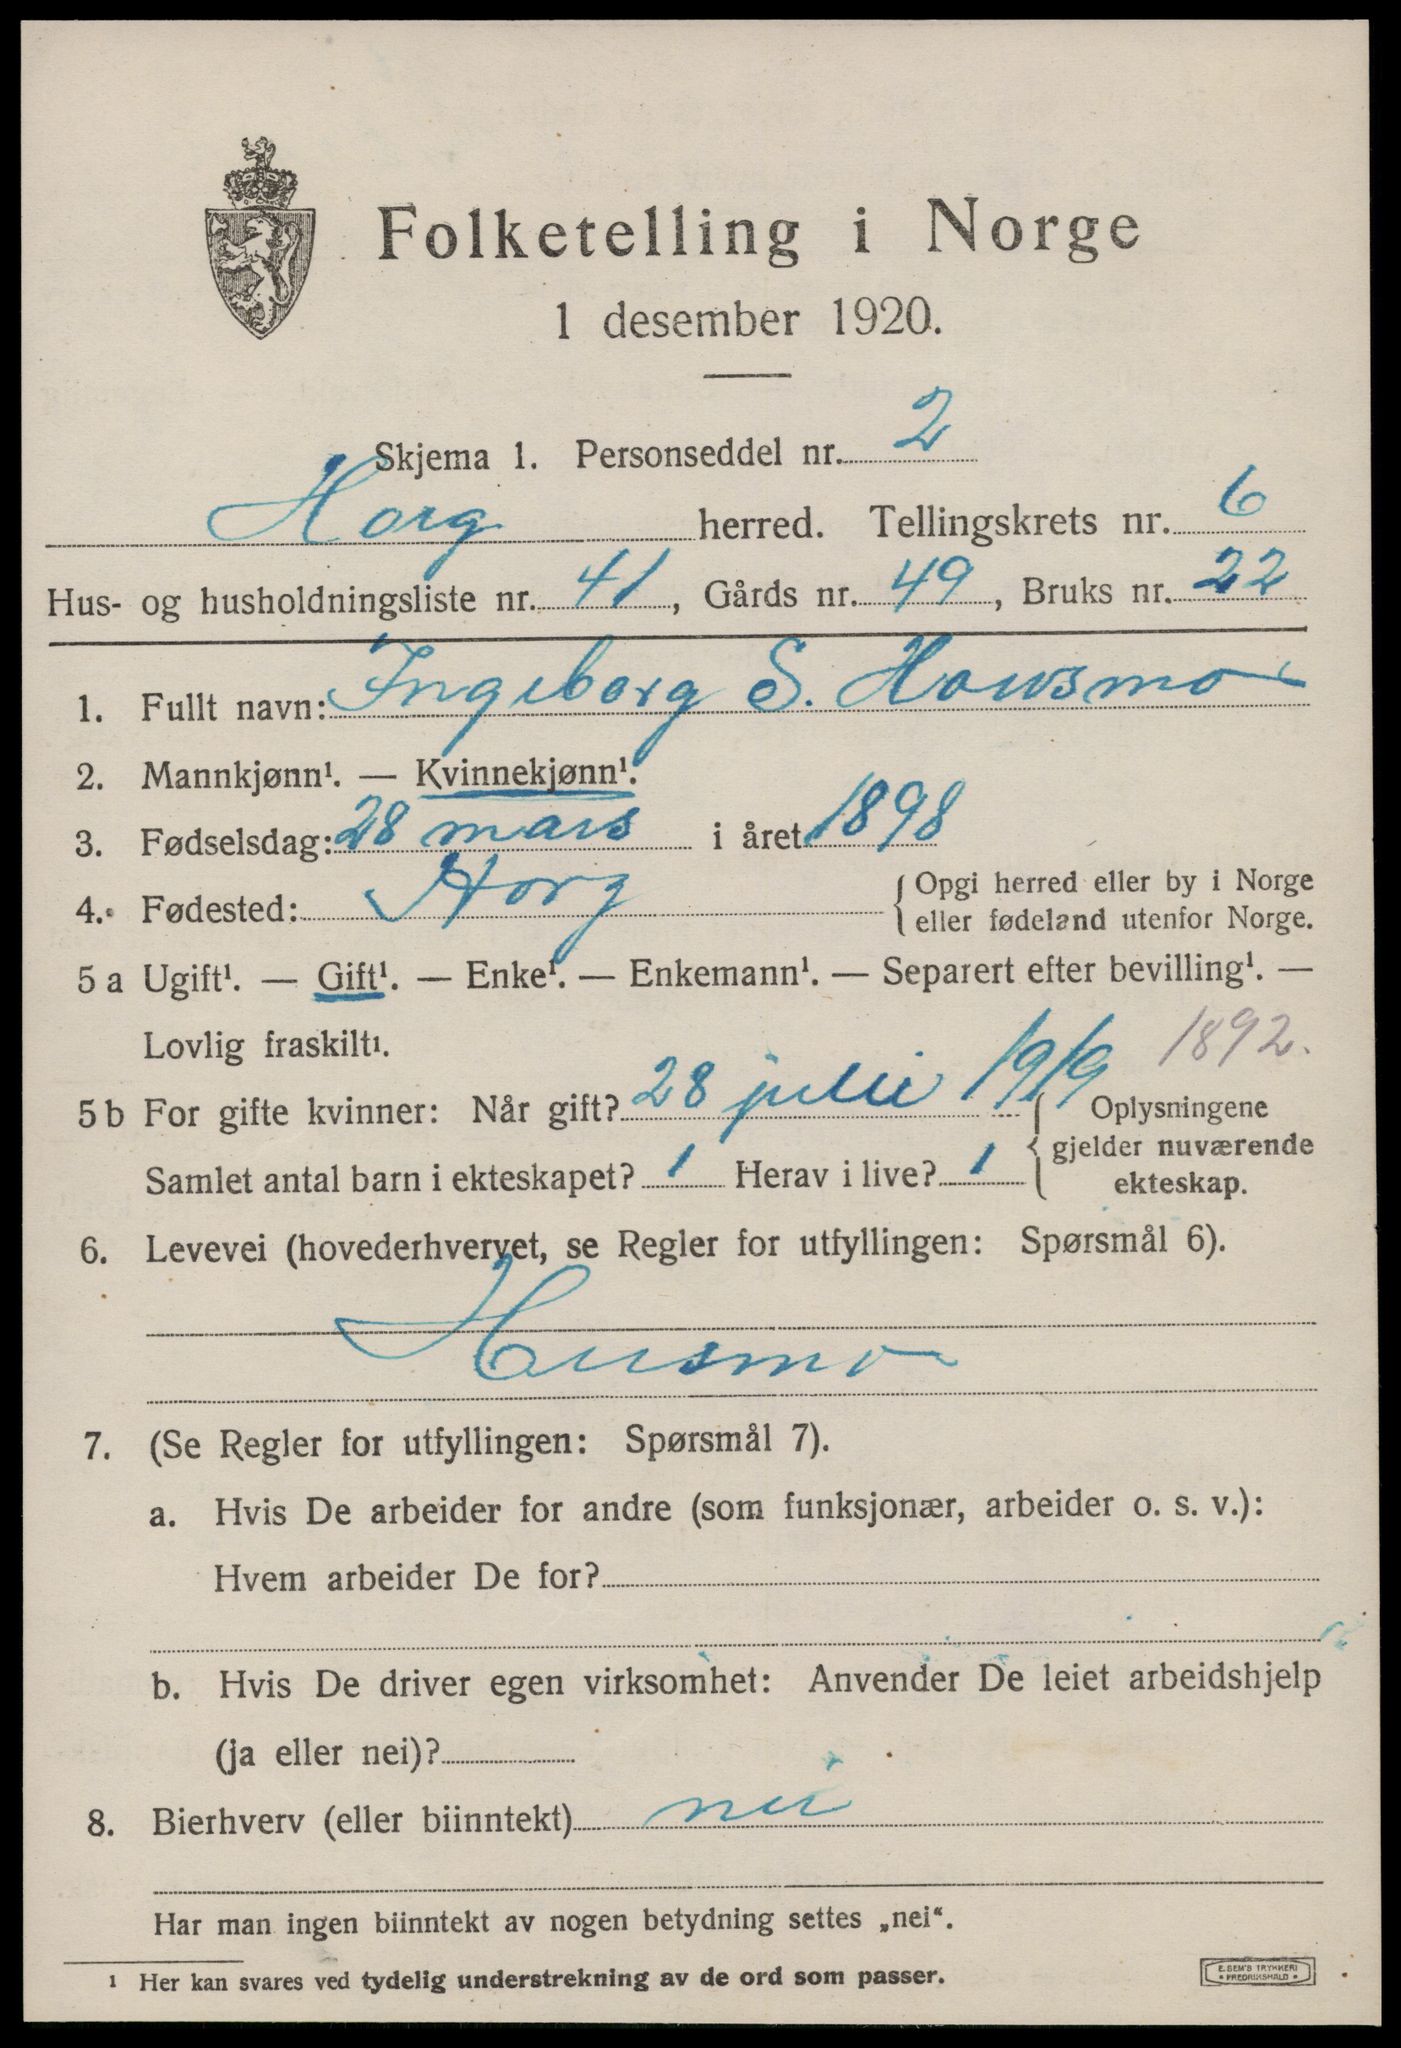 Folketelling i Norge
1 desember 1920.
Skjema 1. Personseddel nr. 2
Horg herred. Tellingskrets nr. 6
Hus- og husholdningsliste nr. 41, Gårds nr. 49, Bruks nr. 22
1. Fullt navn: Ingeborg S. Housmo
2. Mannkjønn¹. — Kvinnekjønn¹.
3. Fødselsdag: 28 mars i året 1898
4. Fødested: Horg { Opgi herred eller by i Norge
eller fødeland utenfor Norge.
5 a Ugift¹. — Gift¹. — Enke¹. — Enkemann¹. — Separert efter bevilling¹. —
Lovlig fraskilt¹.
1892.
5 b For gifte kvinner: Når gift? 28 juli 1919 { Oplysningene
gjelder nuværende
Samlet antal barn i ekteskapet? 1 Herav i live? 1
ekteskap.
6. Levevei (hovederhvervet, se Regler for utfyllingen: Spørsmål 6).
Husmo
7. (Se Regler for utfyllingen: Spørsmål 7).
a. Hvis De arbeider for andre (som funksjonær, arbeider o. s. v.):
Hvem arbeider De for?
b. Hvis De driver egen virksomhet: Anvender De leiet arbeidshjelp
(ja eller nei)?
8. Bierhverv (eller biinntekt) nei
Har man ingen biinntekt av nogen betydning settes „nei“.
¹ Her kan svares ved tydelig understrekning av de ord som passer.
E. SEM'S TRYKKERI
• FREDRIKSHALD •